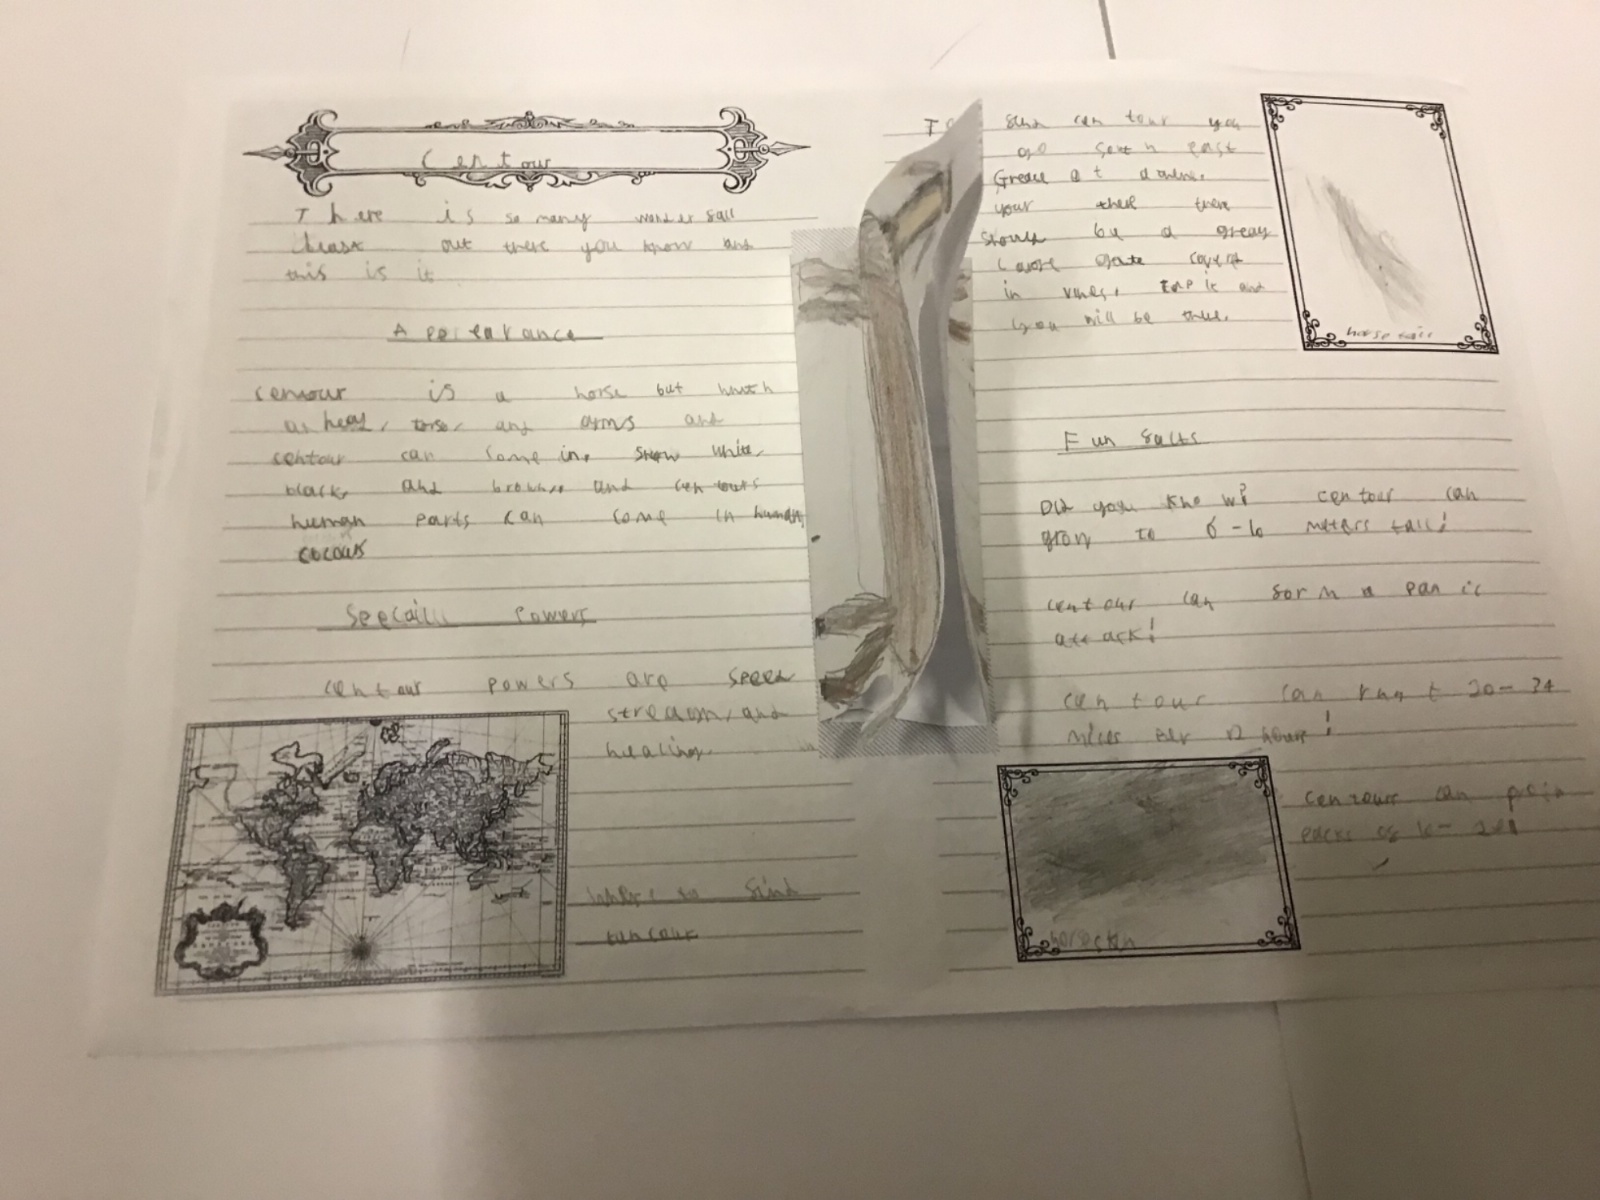 Centour
There is so many wonder
out there you know and
this is it
Apereakance
centour is a horse but
head, torso, and arms and
centour can some in, snow white,
black, and brown and centours
human parts can come in human
colours
Seecaill Powers
centour powers are speed
stream, and
healing.
where to find
To find centour you
go south east
Greace at dawn.
your there there
should be a greay
large gate covert
in vines, tap it and
you will be there.
horse tail
Fun facts
Did you know? centour can
grow to 6-10 meters tall!
centour can form a panic
attack!
centour can run t 20-34
miles per a hour!
centours can
packs of 10-20!